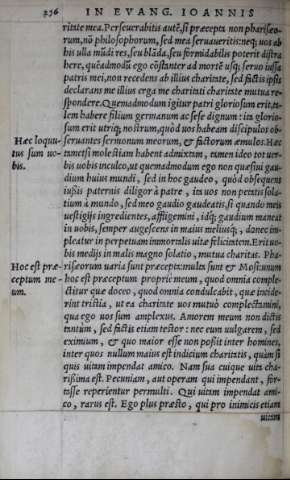 256 IN EVANG. IOANNIS
ritate mea. Perseuerabitis autē, si præcepta non phariseo-
rum, nō philosophorum, sed mea seruaueritis: neq; uos ab
his ulla mūdi res, seu blāda, seu formidabilis poterit distra
here, quēadmodū ego cōstanter ad mortē usq; seruo iussa
patris mei, non recedens ab illius charitate, sed factis ipsis
declarans me illius erga me charitati charitate mutua re-
spondere. Quemadmodum igitur patri gloriosum erit, ta-
lem habere filium germanum ac sese dignum: ita glorio-
sum erit utriq; nostrum, quòd uos habeam discipulos ob-
Hæc loquu-
tus sum uo-
bis.
seruantes sermonum meorum, & factorum æmulos. Hæc
tametsi molestiam habent admixtam, tamen ideo tot uer-
bis uobis inculco, ut quemadmodum ego non quæsiui gau
dium huius mundi, sed in hoc gaudeo, quòd obsequens
iussis paternis diligor à patre, ita uos non petatis sola-
tium à mundo, sed meo gaudio gaudeatis, si quando meis
uestigijs ingredientes, affligemini, idq; gaudium maneat
in uobis, semper augescens in maius meliusq;, donec im-
pleatur in perpetuam immortalis uitæ felicitatem. Erit uo-
bis medijs in malis magno solatio, mutua charitas. Pha-
Hoc est præ-
ceptum me-
um.
risæorum uaria sunt præcepta: multa sunt & Mosi: unum
hoc est præceptum proprie meum, quod omnia comple-
ctitur quæ doceo, quod omnia condulcabit, quæ incide-
rint tristia, ut ea charitate uos mutuò complectamini,
qua ego uos sum amplexus. Amorem meum non dictis
tantum, sed factis etiam testor: nec eum uulgarem, sed
eximium, & quo maior esse non possit inter homines,
inter quos nullum maius est indicium charitatis, quàm si
quis uitam impendat amico. Nam sua cuique uita cha-
rissima est. Pecuniam, aut operam qui impendant, for-
tasse reperientur permulti. Qui uitam impendat ami-
co, rarus est. Ego plus præsto, qui pro inimicis etiam
uitam